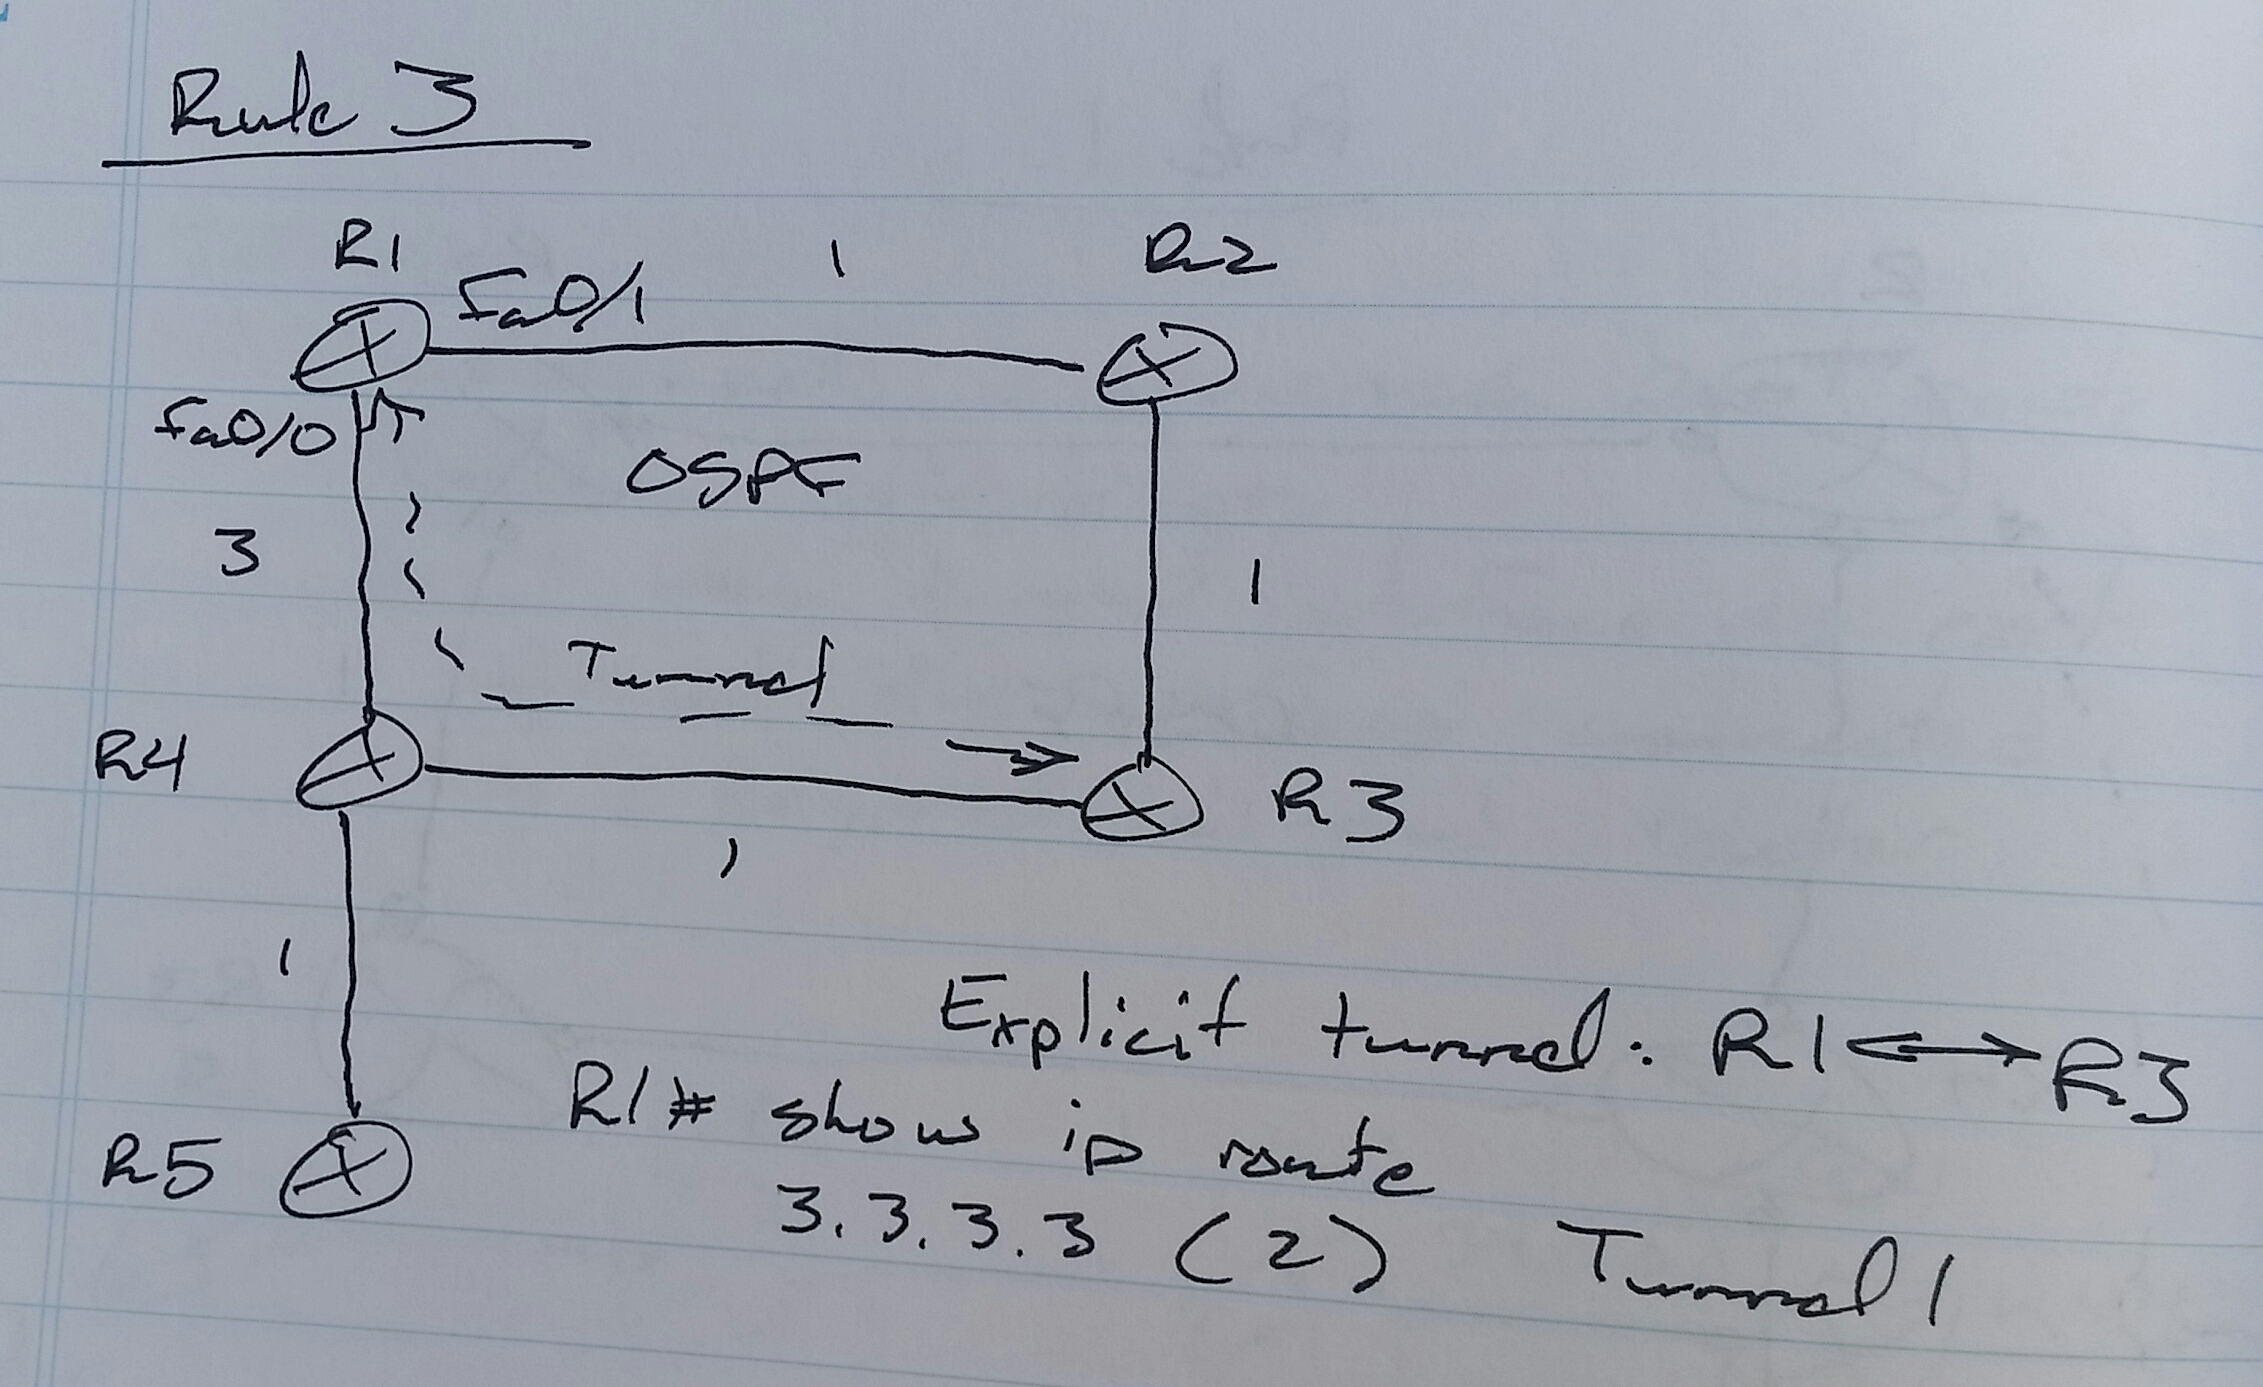 Rule 3
R1
1
R2
Fa0/1
Fa0/0
OSPF
3
1
Tunnel
R4
R3
1
1
Explicit tunnel: R1 ↔ R3
R5
R1# show ip route
3.3.3.3 (2) Tunnel 1